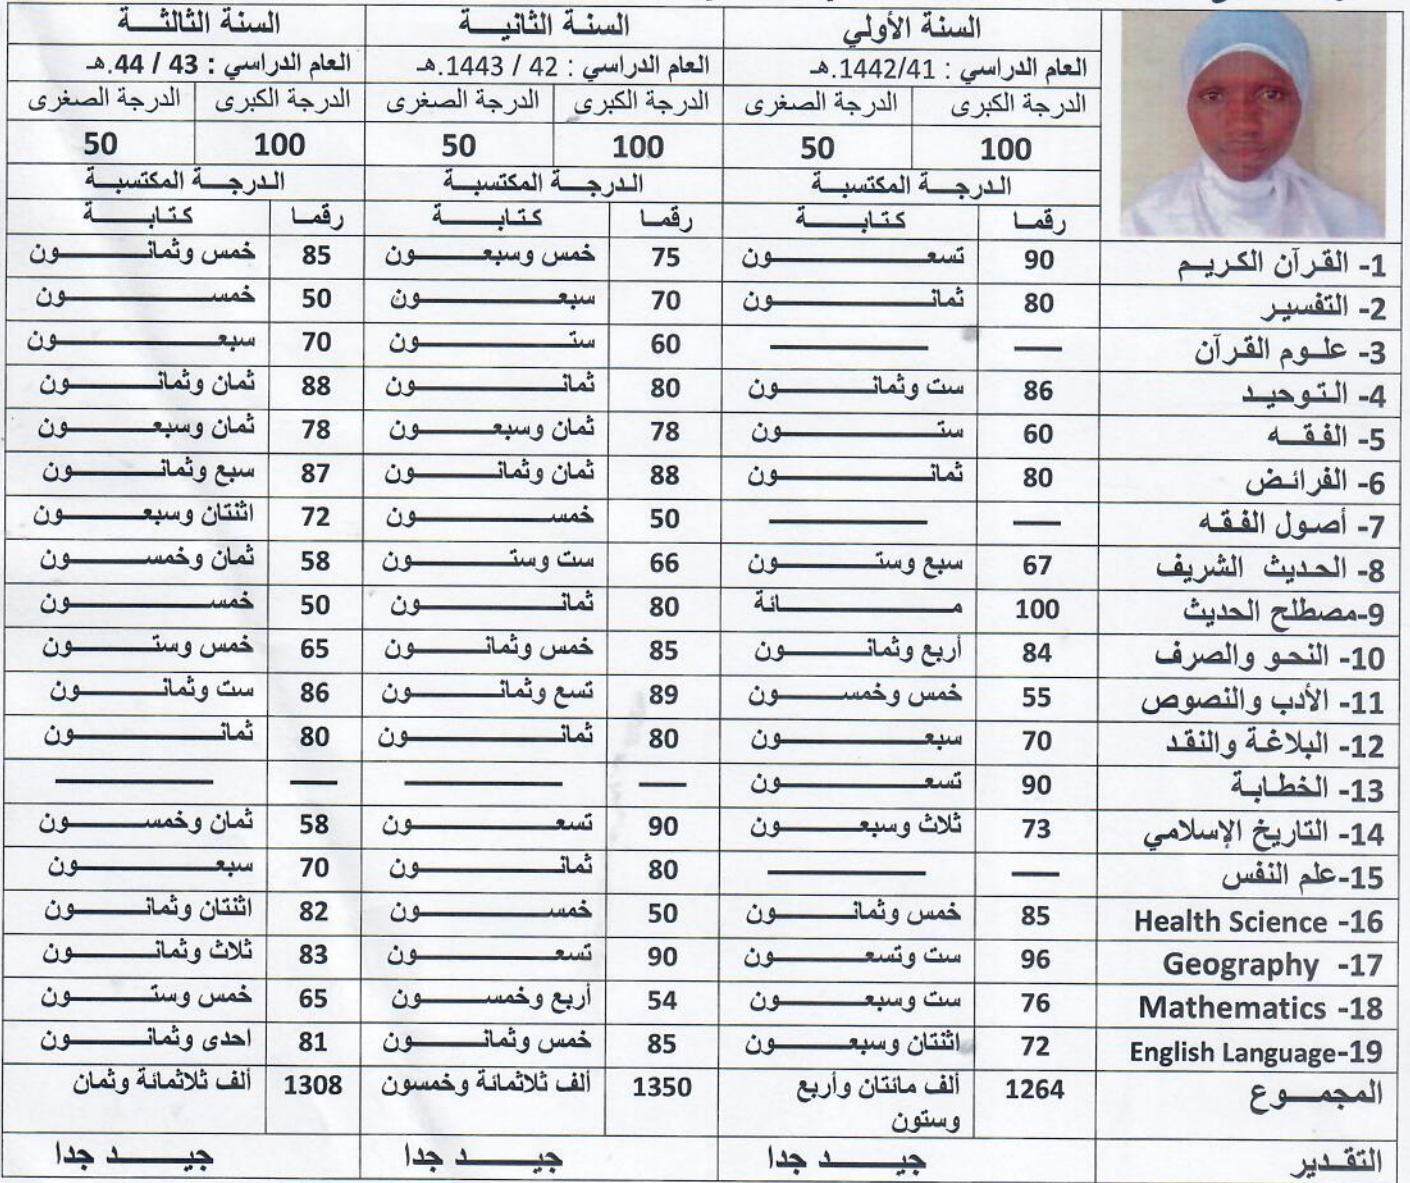 السنة الأولي | السنة الثانية | السنة الثالثة
العام الدراسي : 1442/41.هـ | العام الدراسي : 42 / 1443.هـ | العام الدراسي : 43 / 44.هـ
الدرجة الكبرى | الدرجة الصغرى | الدرجة الكبرى | الدرجة الصغرى | الدرجة الكبرى | الدرجة الصغرى
100 | 50 | 100 | 50 | 100 | 50
الدرجة المكتسبة | الدرجة المكتسبة | الدرجة المكتسبة
رقما | كتابة | رقما | كتابة | رقما | كتابة
1- القرآن الكريم | 90 | تسعون | 75 | خمس وسبعون | 85 | خمس وثمانون
2- التفسير | 80 | ثمانون | 70 | سبعون | 50 | خمسون
3- علوم القرآن | — | — | 60 | ستون | 70 | سبعون
4- التوحيد | 86 | ست وثمانون | 80 | ثمانون | 88 | ثمان وثمانون
5- الفقه | 60 | ستون | 78 | ثمان وسبعون | 78 | ثمان وسبعون
6- الفرائض | 80 | ثمانون | 88 | ثمان وثمانون | 87 | سبع وثمانون
7- أصول الفقه | — | — | 50 | خمسون | 72 | اثنتان وسبعون
8- الحديث الشريف | 67 | سبع وستون | 66 | ست وستون | 58 | ثمان وخمسون
9-مصطلح الحديث | 100 | مائة | 80 | ثمانون | 50 | خمسون
10- النحو والصرف | 84 | أربع وثمانون | 85 | خمس وثمانون | 65 | خمس وستون
11- الأدب والنصوص | 55 | خمس وخمسون | 89 | تسع وثمانون | 86 | ست وثمانون
12- البلاغة والنقد | 70 | سبعون | 80 | ثمانون | 80 | ثمانون
13- الخطابة | 90 | تسعون | — | — | — | —
14- التاريخ الإسلامي | 73 | ثلاث وسبعون | 90 | تسعون | 58 | ثمان وخمسون
15-علم النفس | — | — | 80 | ثمانون | 70 | سبعون
16- Health Science | 85 | خمس وثمانون | 50 | خمسون | 82 | اثنتان وثمانون
17- Geography | 96 | ست وتسعون | 90 | تسعون | 83 | ثلاث وثمانون
18- Mathematics | 76 | ست وسبعون | 54 | أربع وخمسون | 65 | خمس وستون
19-English Language | 72 | اثنتان وسبعون | 85 | خمس وثمانون | 81 | احدى وثمانون
المجموع | 1264 | ألف مائتان وأربع وستون | 1350 | ألف ثلاثمائة وخمسون | 1308 | ألف ثلاثمائة وثمان
التقدير | جيد جدا | جيد جدا | جيد جدا